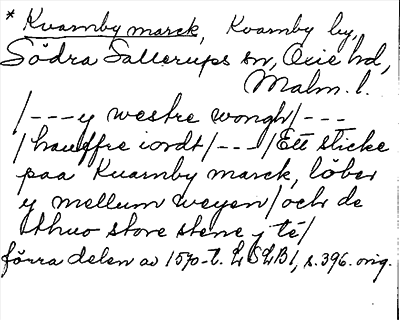 * Kvarnby marck, Kvarnby by,
Södra Sallerups sn, Oxie hd,
Malm. l.
/---y westre wongh/---
/hauffre iordt/---/Ett sticke
paa Kuarnby marck, löber
y mellum weyen/och de
thuo store stene y té/
förra delen av 1570-t. LSLB1, s. 396. orig.